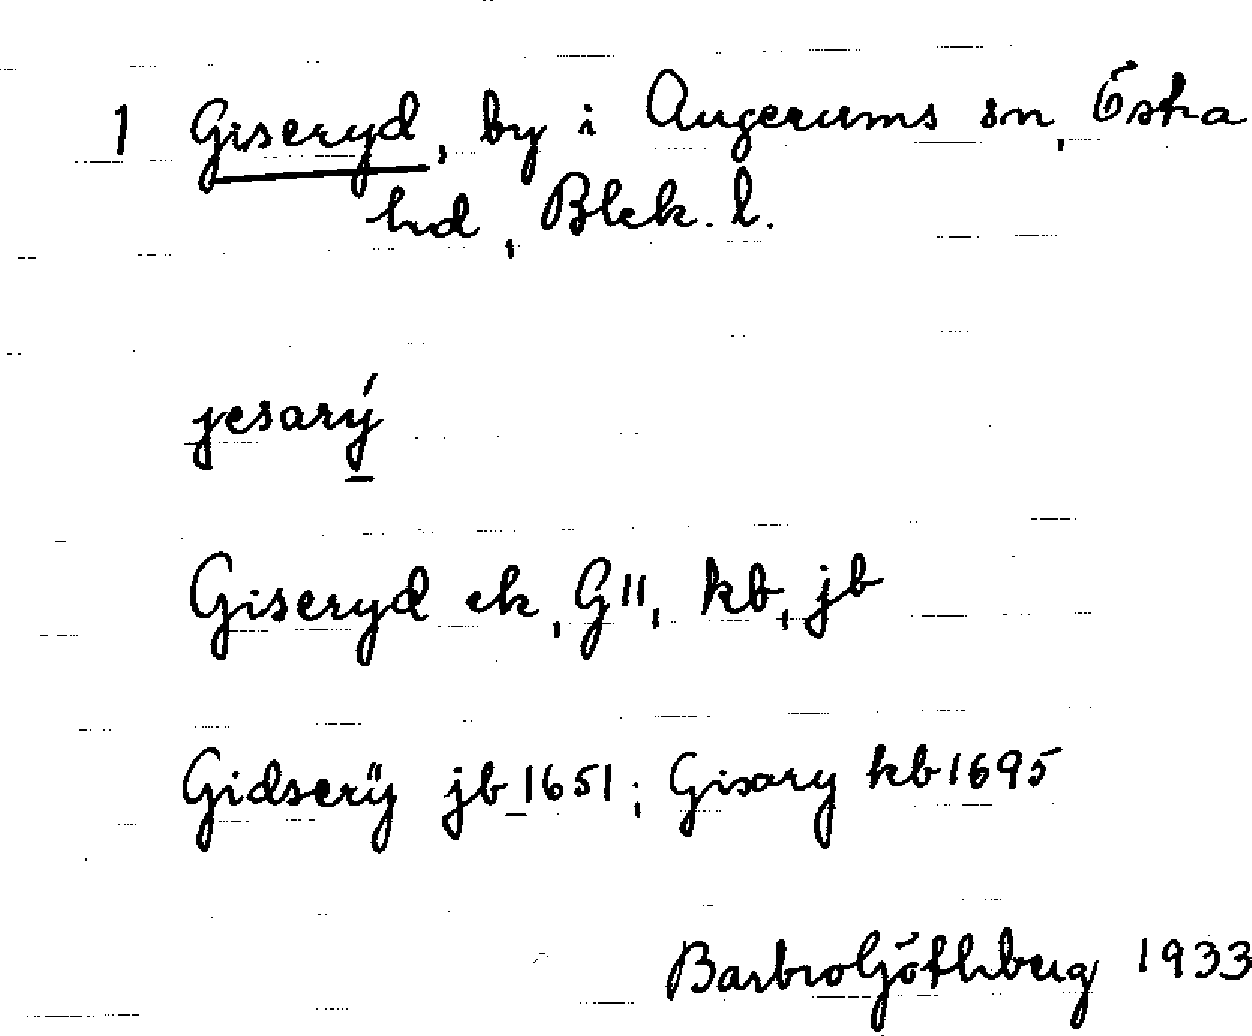 1 Giseryd, by i Augerums sn, Östra
hd, Blek. l.
jesarý
Giseryd ek, G11, kb, jb
Gidserÿ jb 1651; Gisary kb 1695
Barbro Göthberg 1933